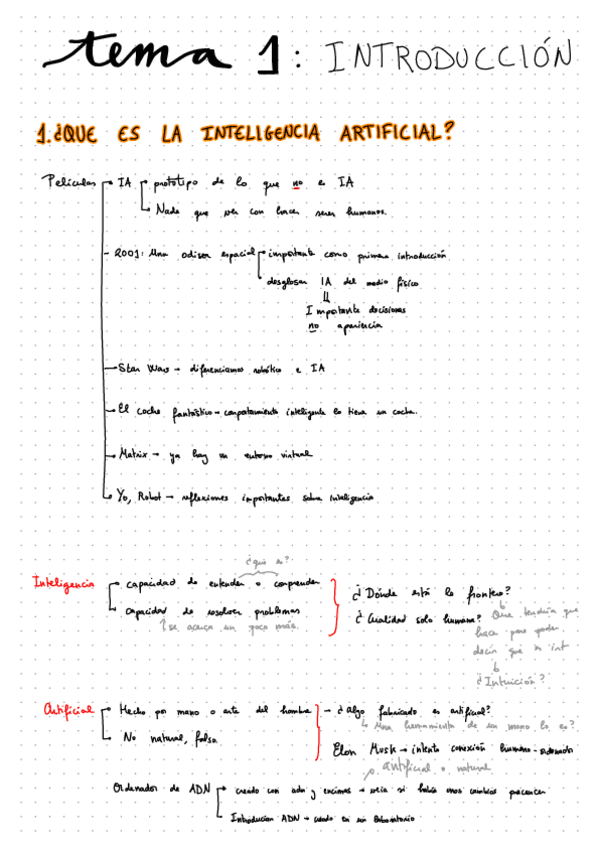 tema 1: INTRODUCCIÓN
1. ¿QUE ES LA INTELIGENCIA ARTIFICIAL?
Películas IA prototipo de lo que no es IA
Nada que ver con hacer seres humanos.
2001: Una odisea espacial importante como primera introducción
desglosar IA del medio físico
Importante decisiones
no apariencia
Star Wars → diferenciamos robótica e IA
El coche fantástico → comportamiento inteligente lo tiene un coche.
Matrix → ya hay un entorno virtual
Yo, Robot → reflexiones importantes sobre inteligencia
¿que es?
Inteligencia capacidad de entender o comprender
capacidad de resolver problemas
↑ se acerca un poco más.
¿Dónde está la frontera?
¿Cualidad solo humana? Que tendría que
hacer para poder
decir que es int
¿Intuición?
Artificial Hecho por mano o arte del hombre → ¿algo fabricado es artificial?
Una herramienta de un mono lo es?
No natural, falso.
Elon Musk → intenta conexión humano -
artificial o natural
Ordenador de ADN creado con adn y encimas → veía si había unos cambios
Introducian ADN → creado en un laboratorio